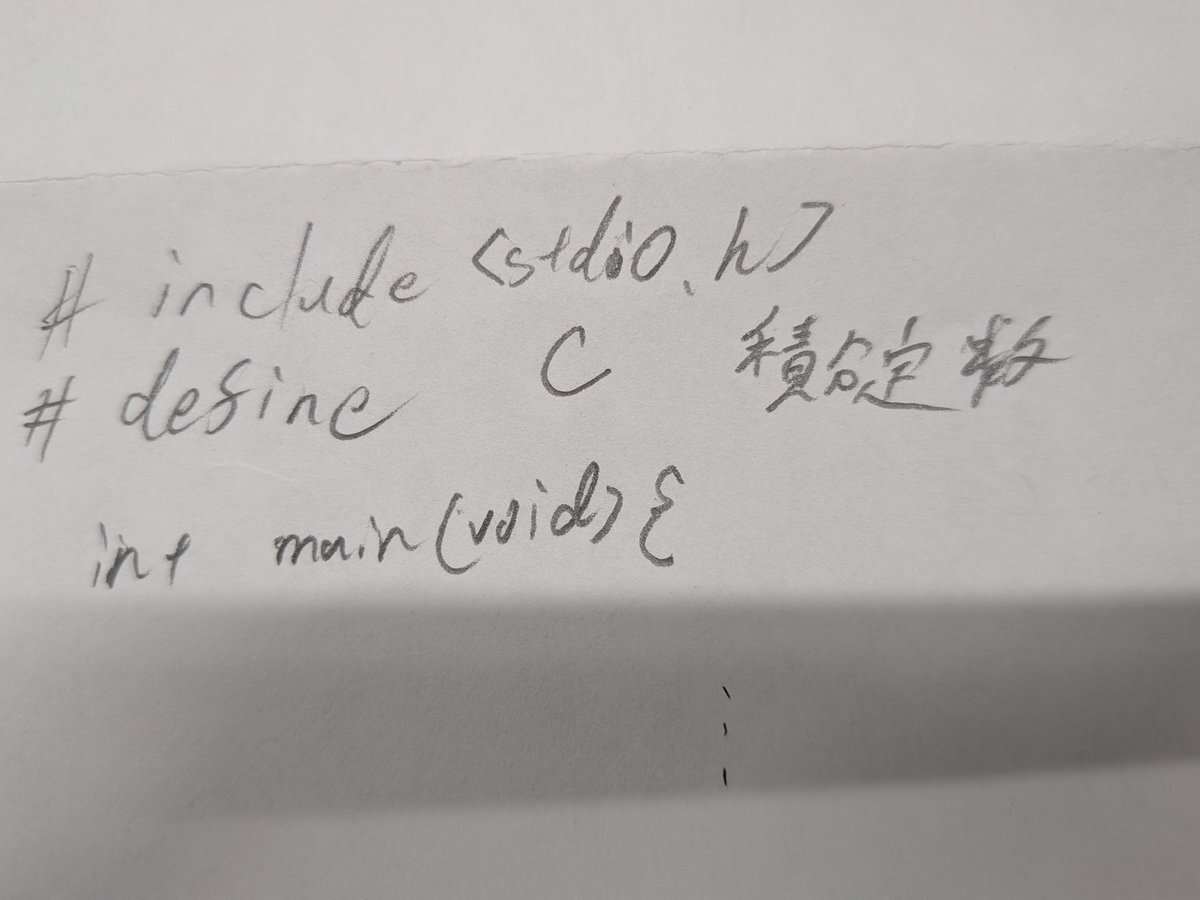 # include <stdio.h>
# define C 積分定数
int main(void){
⋮